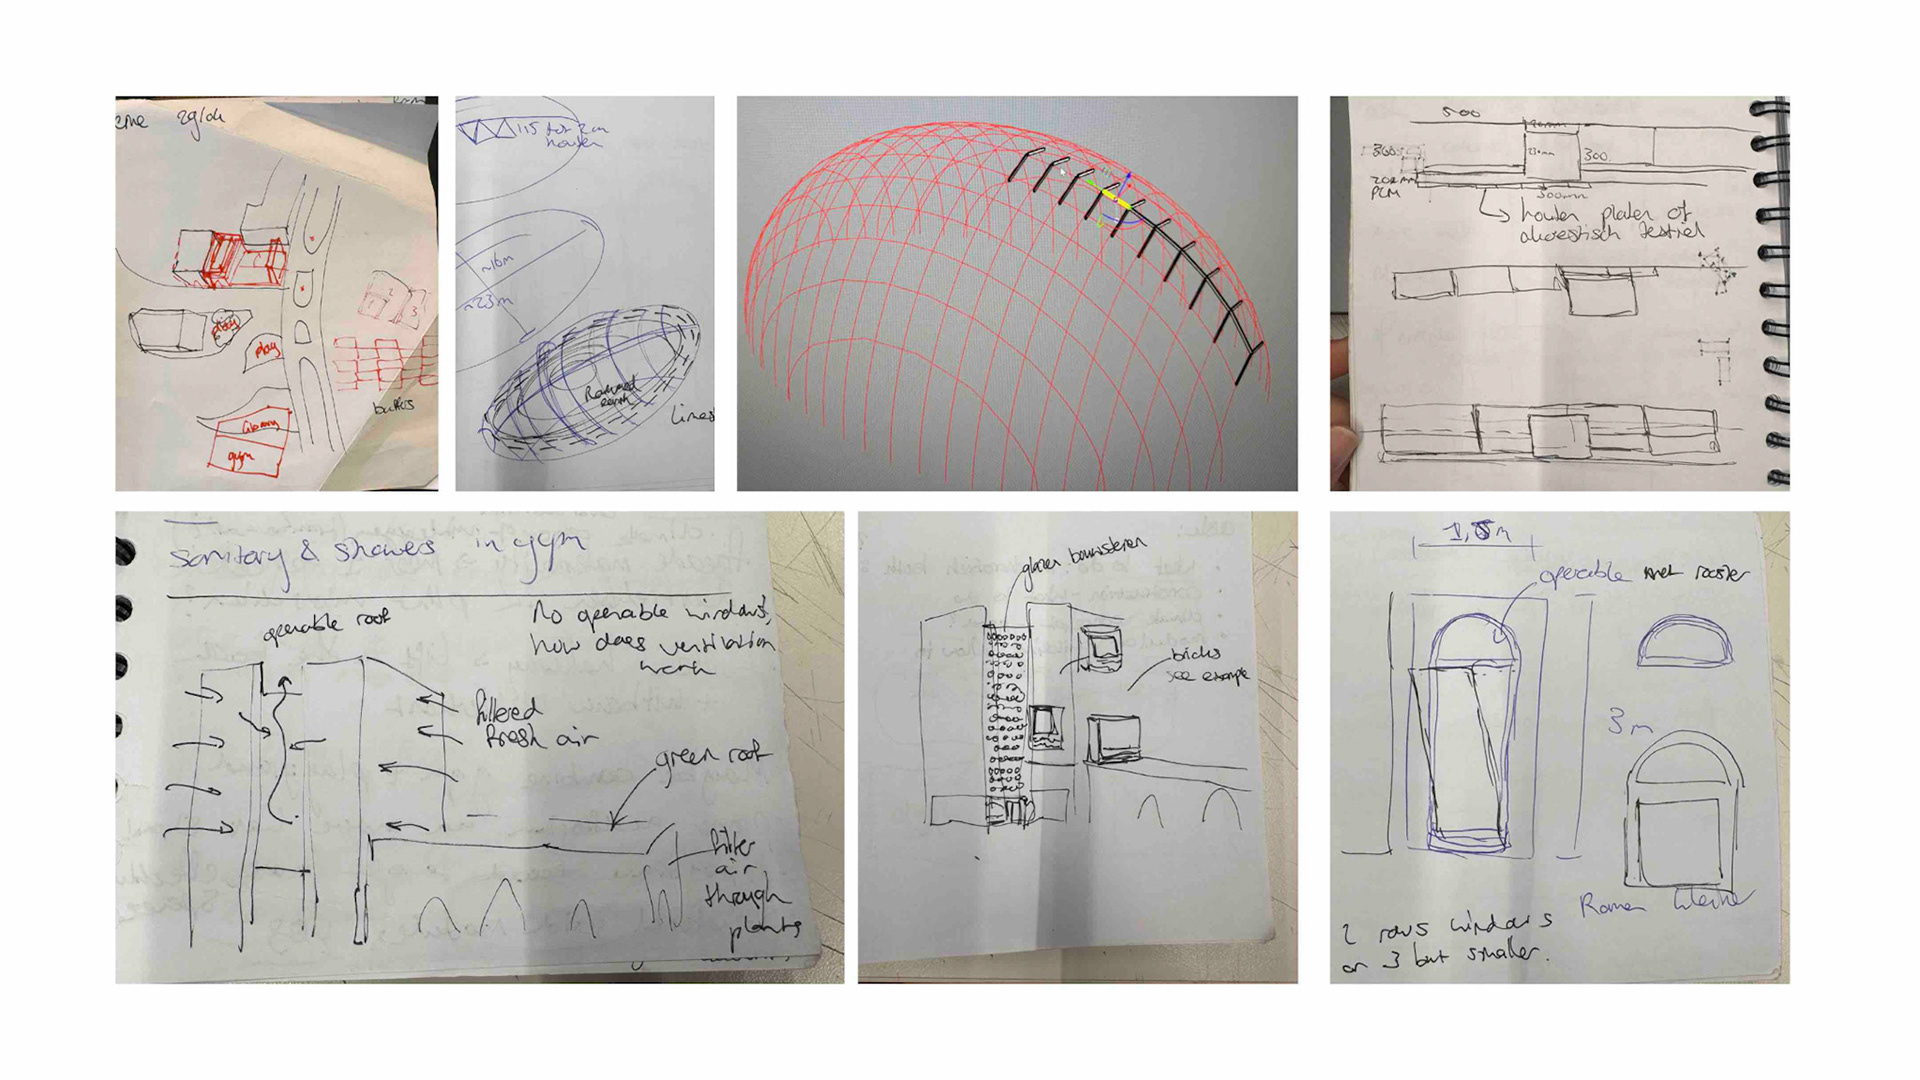 play
play
library
gym
2
3
115 for 2m
houten
~16m
~23m
Rammed
earth
Lines
500
300
230mm
300
200mm
PCM
300mm
houten platen of
akoestisch textiel
sanitary & showers in gym
operable roof
No operable windows,
how does ventilation
work
filtered
fresh air
green roof
filter
air
through
plants
glazen bouwstenen
bricks
see example
1,5m
operable met rooster
3m
Ramen kleiner
2 rows windows
or 3 but smaller.